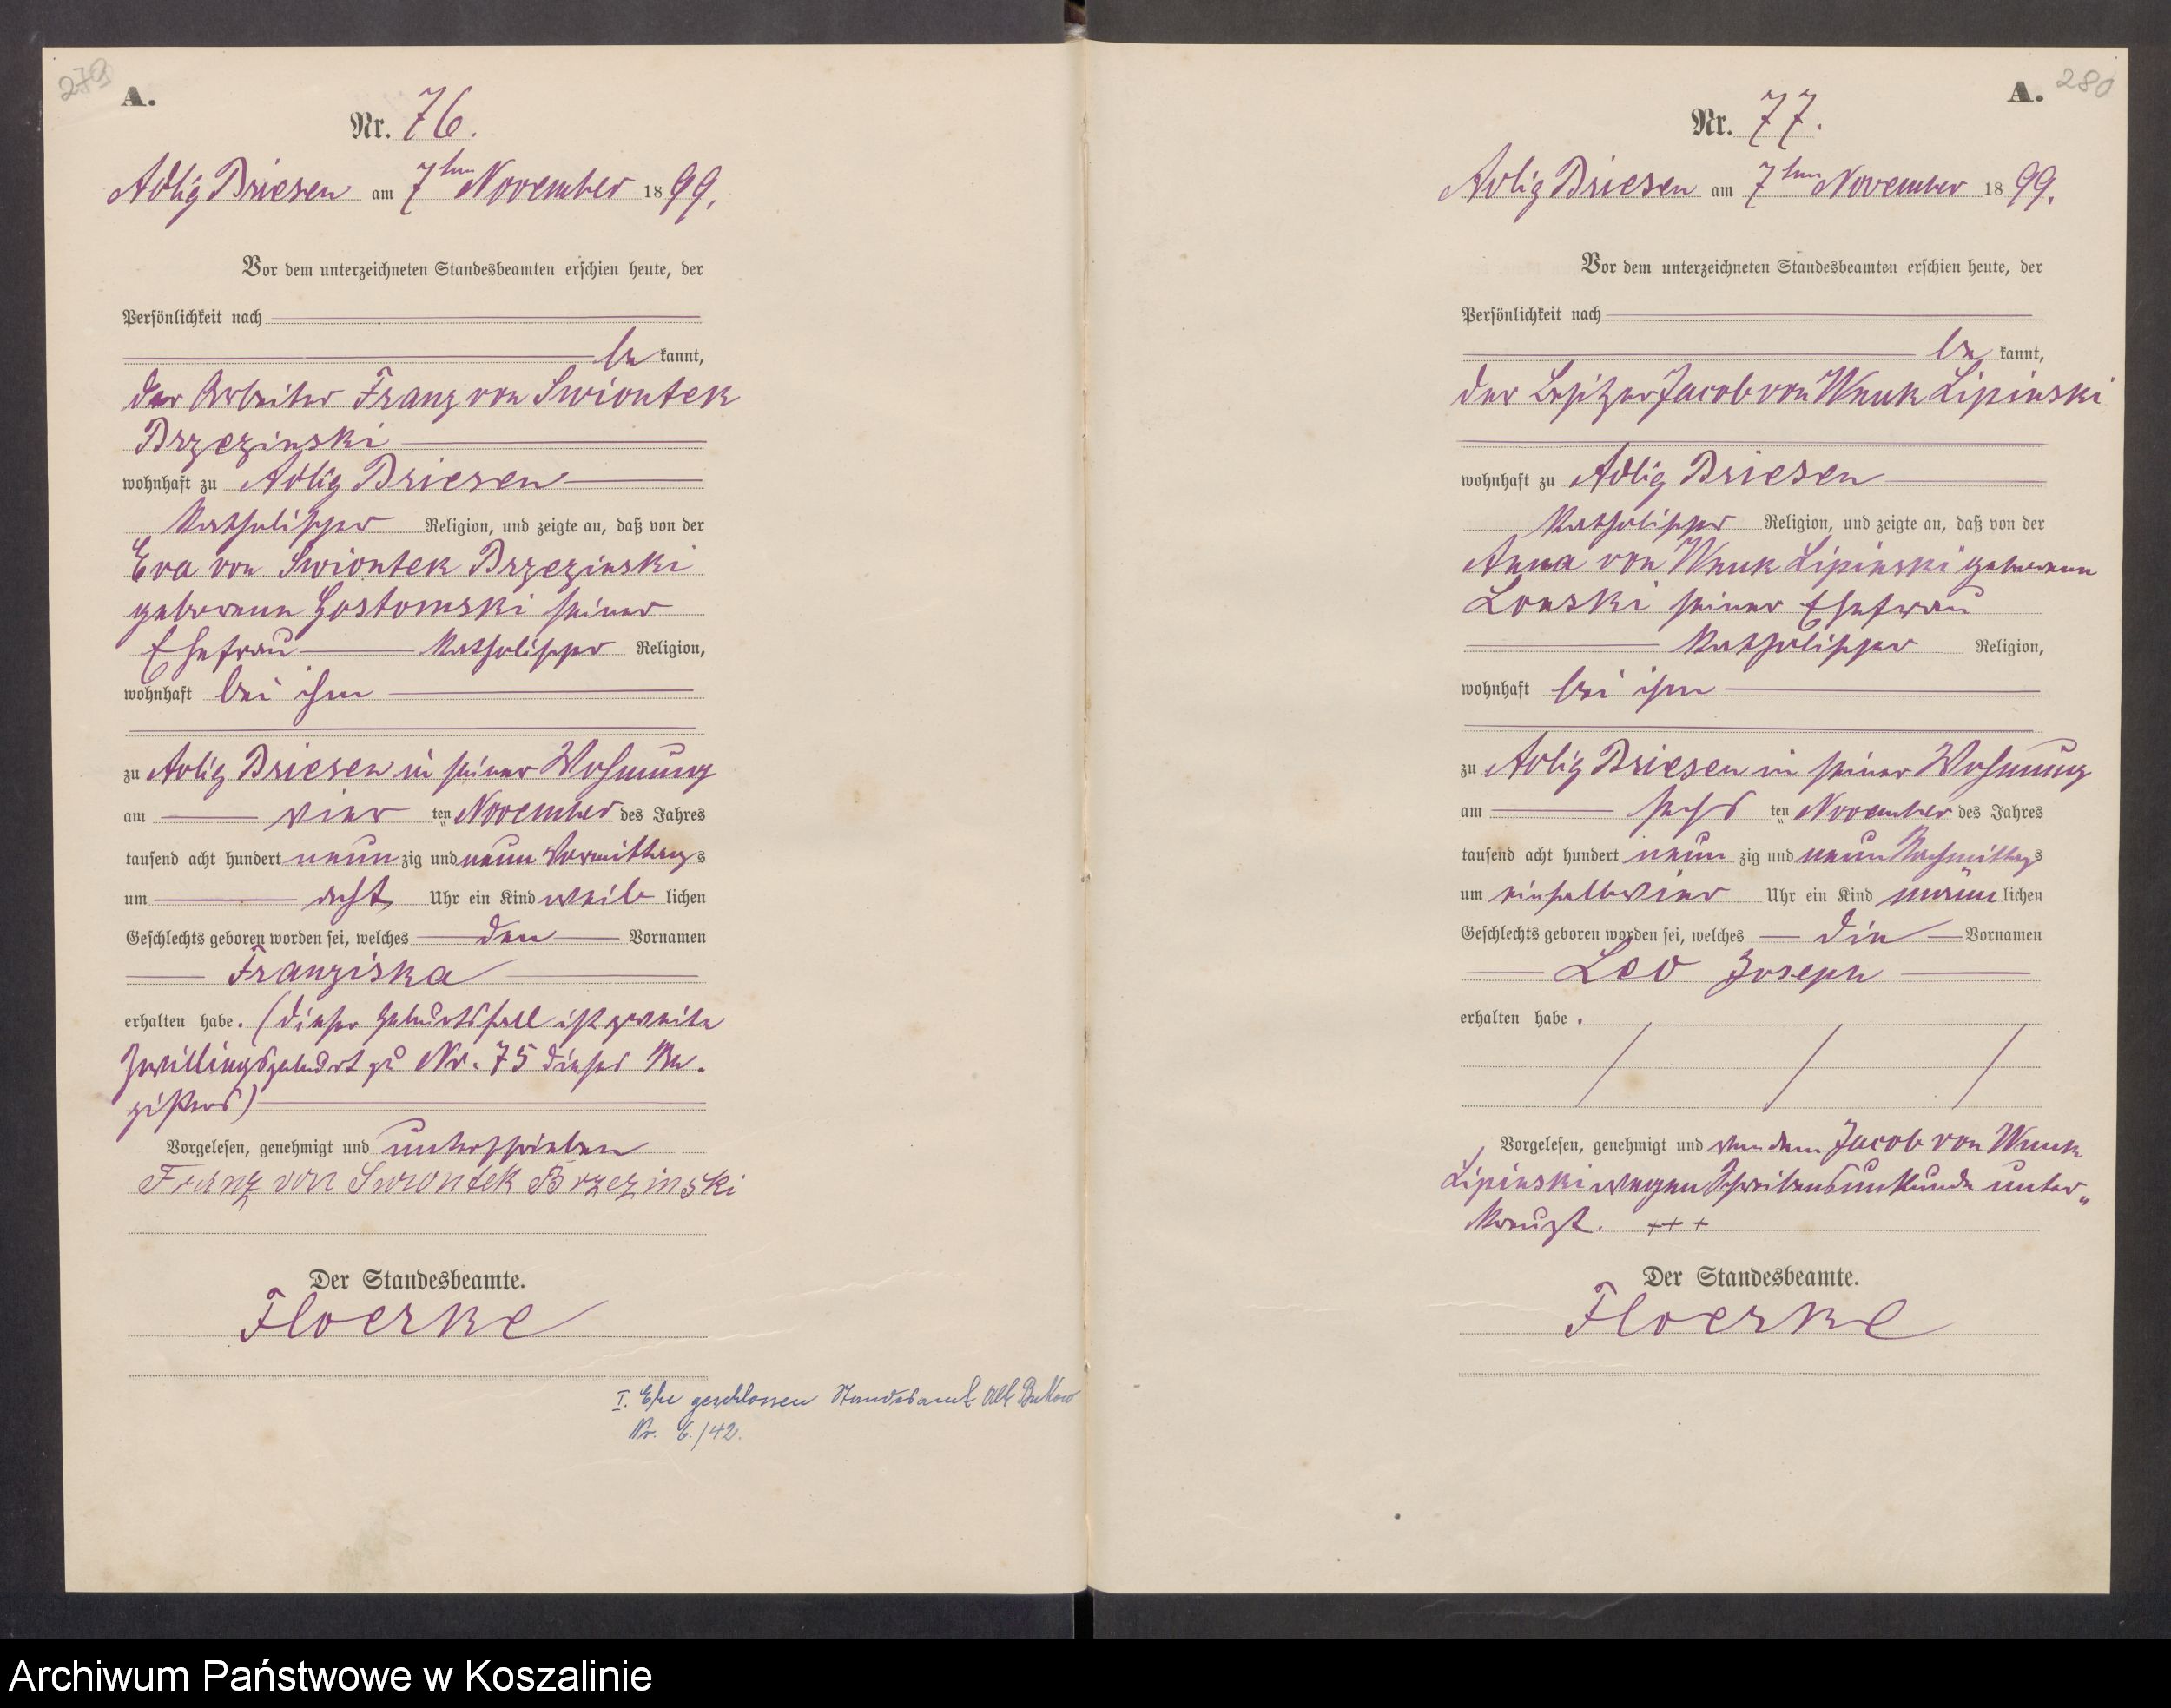 279
A.
Nr. 76.
Adlig Briesen am 7ten November 1899.
Vor dem unterzeichneten Standesbeamten erschien heute, der
Persönlichkeit nach
be kannt,
der Arbeiter Franz von Swiontek
Brzezinski
wohnhaft zu Adlig Briesen
katholischer Religion, und zeigte an, daß von der
Eva von Swiontek Brzezinski
geborenen Gostomski seiner
Ehefrau katholischer Religion,
wohnhaft bei ihm
zu Adlig Briesen in seiner Wohnung
am vier ten November des Jahres
tausend acht hundert neun zig und neun Vormittags
um acht Uhr ein Kind weib lichen
Geschlechts geboren worden sei, welches den Vornamen
Franziska
erhalten habe. (Dieser Geburtsfall ist zweite
Zwillingsgeburt zu Nr. 75 dieses Re-
gisters)
Vorgelesen, genehmigt und unterschrieben
Franz von Swiontek Brzezinski
Der Standesbeamte.
Floerke
I. Ehe geschlossen Standesamt Alt
Nr. 6./42.
A. 280
Nr. 77.
Adlig Briesen am 7ten November 1899.
Vor dem unterzeichneten Standesbeamten erschien heute, der
Persönlichkeit nach
be kannt,
der Besitzer Jacob von Wnuk Lipinski
wohnhaft zu Adlig Briesen
katholischer Religion, und zeigte an, daß von der
Anna von Wnuk Lipinski geborenen
Lonski seiner Ehefrau
katholischer Religion,
wohnhaft bei ihm
zu Adlig Briesen in seiner Wohnung
am sechs ten November des Jahres
tausend acht hundert neun zig und neun Nachmittags
um einhalbvier Uhr ein Kind männ lichen
Geschlechts geboren worden sei, welches die Vornamen
Leo Joseph
erhalten habe.
Vorgelesen, genehmigt und von dem Jacob von Wnuk
Lipinski wegen Schreibensunkunde unter„
kreuzt. +++
Der Standesbeamte.
Floerke
Archiwum Państwowe w Koszalinie